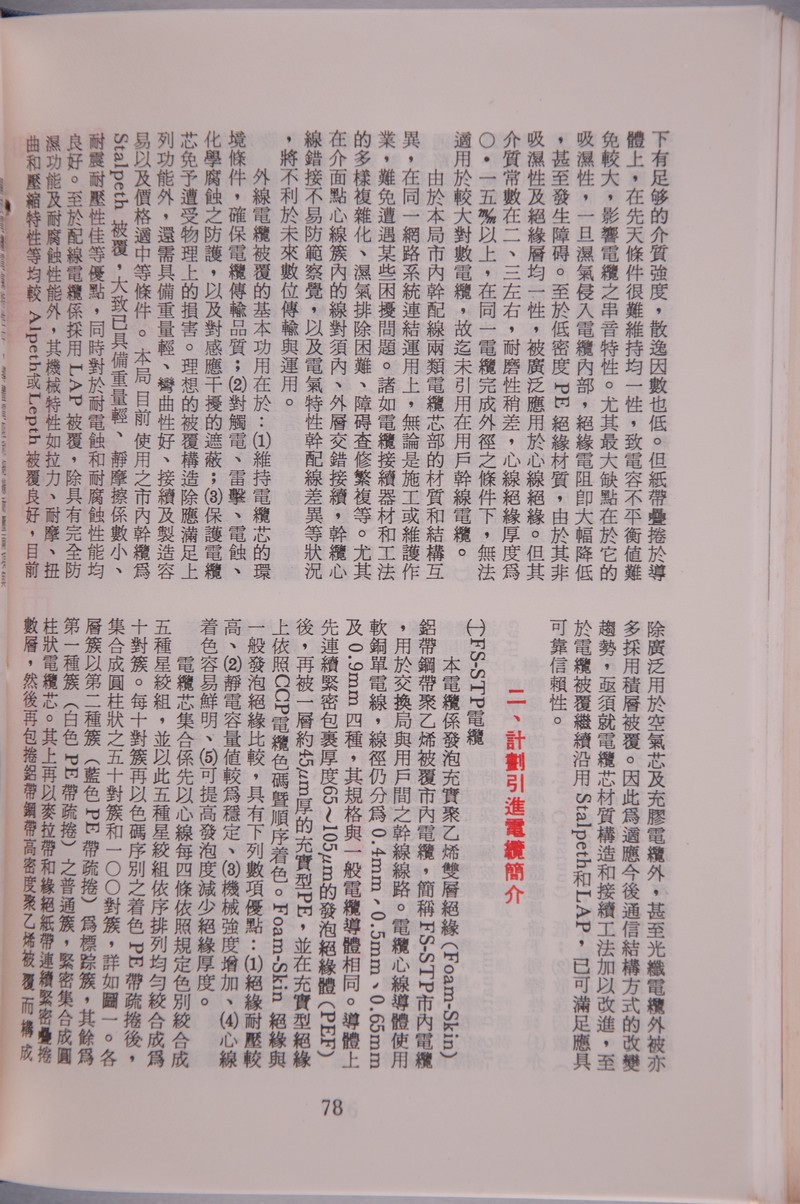 下有足够的介質強度，散逸因數也低。但紙帶疊捲於導
體上，在先天條件很難維持均一性，致電容不平衡值難
免較大，影響電纜之串音特性。尤其最大缺點在於它的
吸濕性，一旦濕氣侵入電纜內部，絕緣電阻卽大幅降低
，甚至發生障碍。至於低密度 PE 絕緣材質，由於其非
吸濕性及絕緣層均一性，被廣泛應用於心線絕緣。但其
介質常數在二、三左右，耐磨性稍差，心線絕緣厚度爲
○·一五㎜以上，在同一電纜完成外徑之條件下，無法
適用於較大對數電纜，故迄未引用在用戶幹線電纜。
由於本局市內幹配線兩類電纜芯部的材質和結構互
異，在同一網路系統連結運用上，無論是施工或維護作
業，難免遭遇某些困擾問題。諸如電纜接續器材和工法
的多樣複雜化、濕氣排除困難、障碍查修繁複等。尤其
在介面點心線簇內的線對須內、外層交錯接續，幹纜心
線錯接不易防範察覺，以及電氣特性幹配線差異等狀況
，將不利於未來數位傳輸與運用。
外線電纜被覆的基本功用在於：⑴維持電纜芯的環
境條件，確保電纜傳輸品質；⑵對觸電、雷擊、電蝕、
化學腐蝕之防護，以及對感應干擾的遮蔽；⑶保護電纜
芯免予遭受物理上的損害。理想的被覆構造除應滿足上
列功能外，還需具備重量輕、彎曲性好、接續及製造容
易以及價格適中等條件。本局目前使用之市內幹纜爲
Stalpeth 被覆，大致已具備重量輕、靜摩擦係數小、
耐震耐壓性佳等優點，同時對於耐電蝕和耐腐蝕性能均
良好。至於配線電纜係採用 LAP 被覆，除具有完全防
濕功能及耐腐蝕性能外，其機械特性如拉力、耐摩、扭
曲和壓縮特性等均較 Alpeth或Lepth 被覆良好，目前
除廣泛用於空氣芯及充膠電纜外，甚至光纖電纜外被亦
多採用積層被覆。因此爲適應今後通信結構方式的改變
趨勢，亟須就電纜芯材質構造和接續工法加以改進，至
於電纜被覆繼續沿用 Stalpeth和LAP，已可滿足應具
可靠信賴性。
二、計劃引進電纜簡介
㈠FS-STP電纜
本電纜係發泡充實聚乙烯雙層絕緣（Foam-Skin）
鋁帶鋼帶聚乙烯被覆市內電纜，簡稱FS-STP市內電纜
，用於交換局與用戶間之幹線線路。電纜心線導體使用
軟銅單電線，線徑仍分爲 0.4mm、0.5mm、0.65mm
及 0.9mm 四種，其規格與一般電纜導體相同。導體上
先連續緊密包裹厚度65～105μm的發泡絕緣體（PEF）
後，再被一層約45μm厚的充實型PE，並在充實型絕緣
上依照CCP電纜色碼暨順序着色。Foam-Skin 絕緣與
一般發泡絕緣比較，具有下列數項優點：⑴絕緣耐壓較
高、⑵靜電容量值較爲穩定、⑶機械強度增加、⑷心線
着色容易鮮明、⑸可提高發泡度減少絕緣厚度。
電纜芯集合係先以心線每四條依照規定色別絞合成
五種星絞組，並以此五種星絞組依序排列均勻絞合成爲
十對簇。每十對簇再以色碼序別之着色 PE 帶疏捲後，
集合成圓柱狀之五十對簇和一○○對簇，詳如圖一。各
層簇以第二種簇（藍色 PE 帶疏捲）爲標踪簇，其餘爲
第一種簇（白色 PE 帶疏捲）之普通簇，緊密集合成圓
柱狀電纜芯。其上再以麥拉帶和緣絕紙帶連續緊密疊捲
數層，然後再包捲鋁帶鋼帶高密度聚乙烯被覆而構成
78